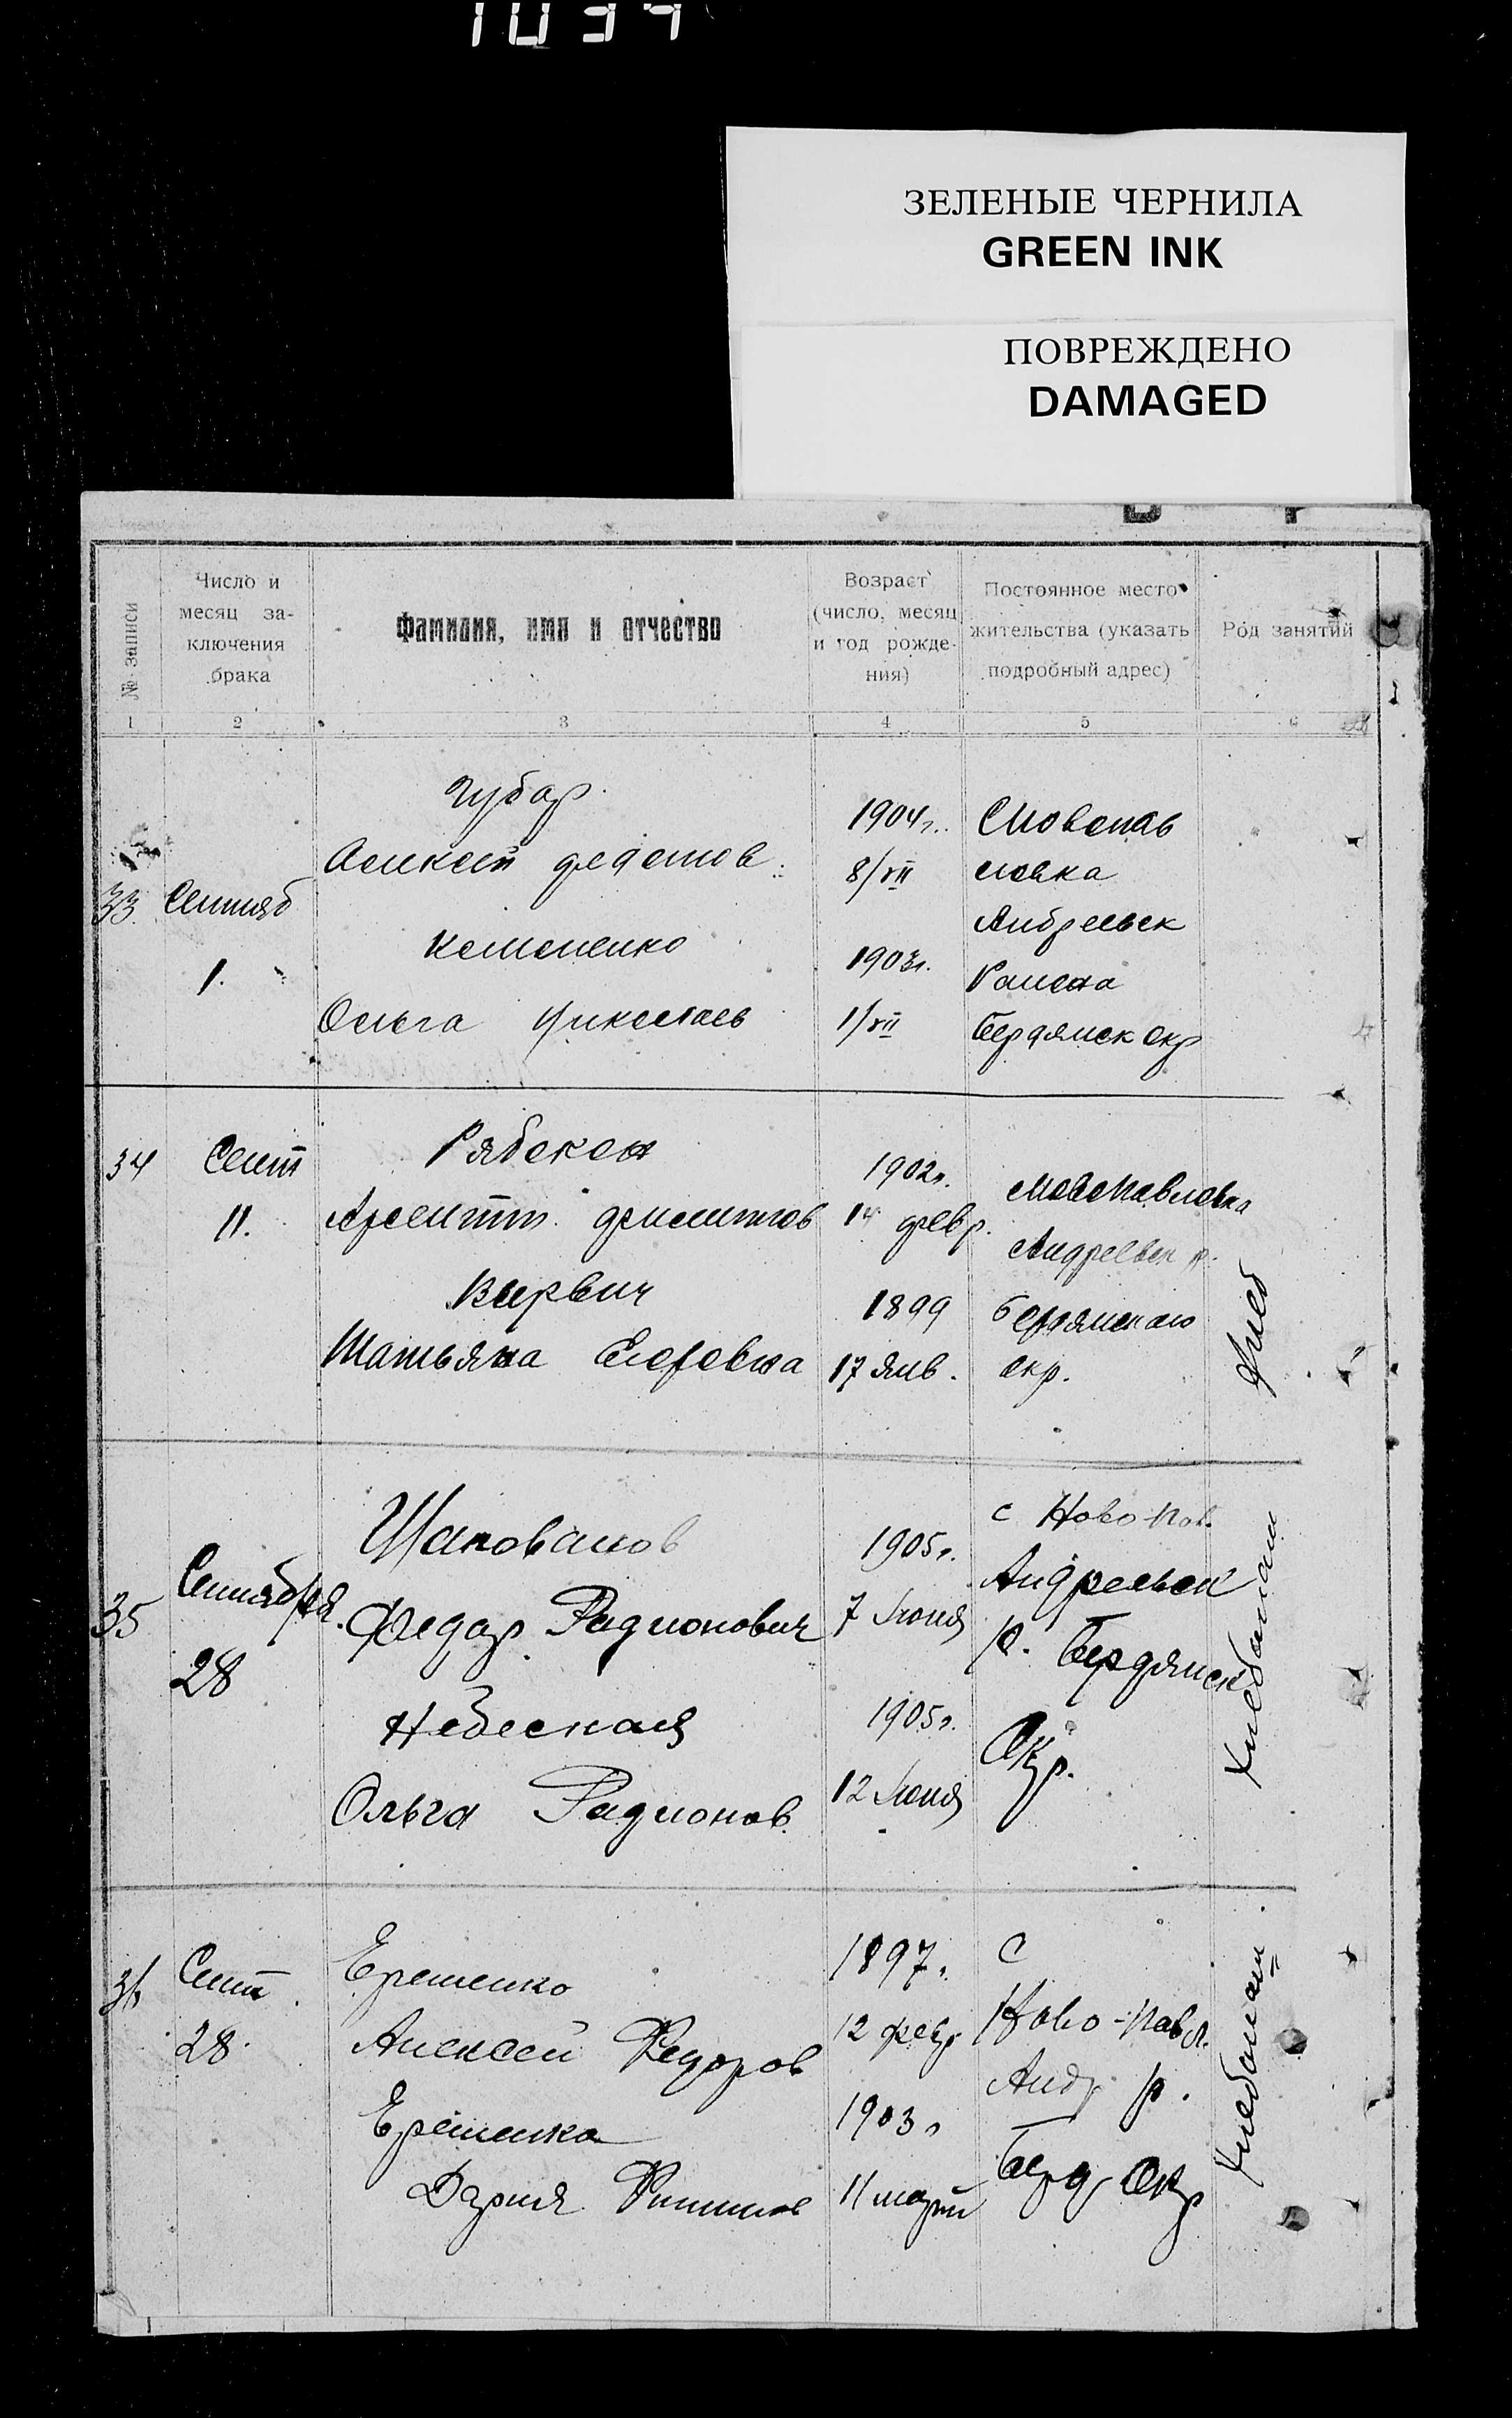 1034
ЗЕЛЕНЫЕ ЧЕРНИЛА
GREEN INK
ПОВРЕЖДЕНО
DAMAGED
№ записи
Число и месяц за-
ключения
брака
Фамилия, имя и отчество
Возраст
(число, месяц
и год рожде-
ния)
Постоянное место
жительства (указать
подробный адрес)
Род занятий
1 2 3 4 5 6
33
Сентяб
1.
Губар
Алексей Федотов
Ольга Николаев
1904г.
8/VII
1903г.
1/VII
Сновопав
ловка
Андреевск
Района
Бердянск окр
34
Сент
11.
Рябокон
Арсентий
Вервич
Татьяна Егоровна
1902г.
14 февр.
1899
17 Янв.
Новопавловка
Андреевск р.
Бердянского
окр.
Хлеб
35
Сентября.
28
Шаповалов
Федор Радионович
Небесная
Ольга Радионов.
1905г.
7 Июня
1905г.
12 Июня
с Ново-Пав.
Андреевск
р. Бердянск
Окр.
Хлебопаш
36
Сент
28.
Ерешенко
Алексей Федоров
Ерешенко
Дария Филипов
1897г.
12 февр
1903г
11 март
С
Ново-Павл.
Андр р.
Берд Окр
Хлебопаш